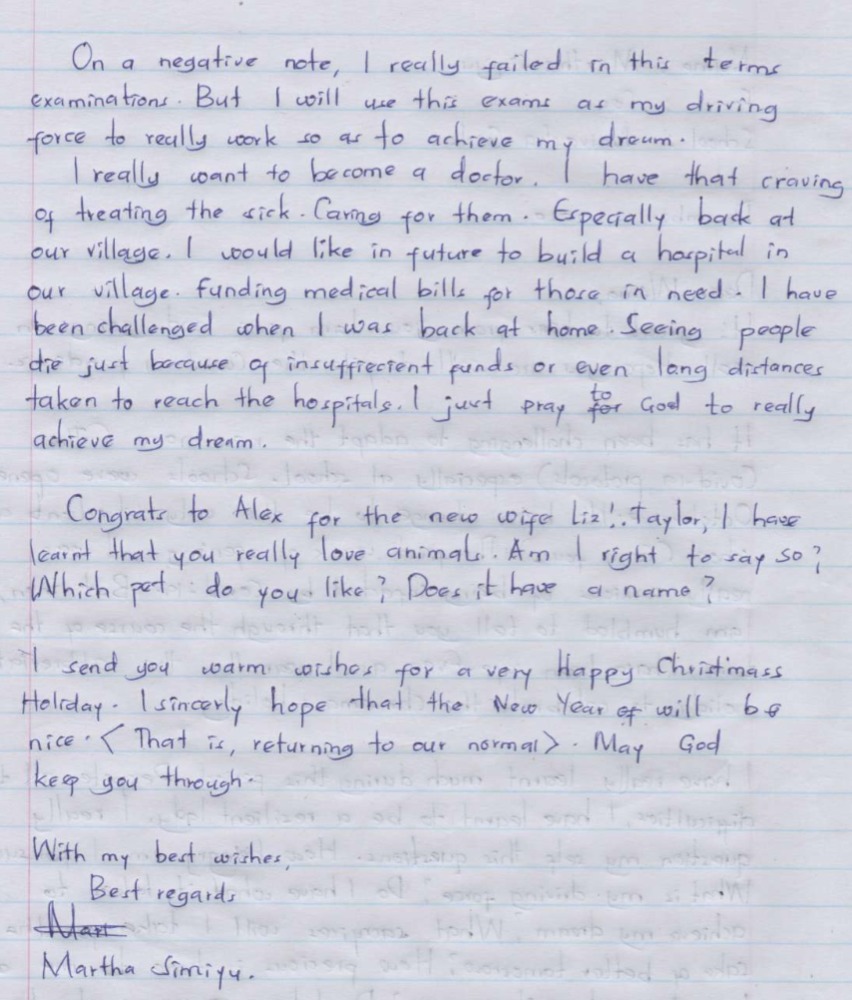 On a negative note, I really failed in this terms
examinations. But I will use this exams as my driving
force to really work so as to achieve my dream.
I really want to become a doctor. I have that craving
of treating the sick. Caring for them. Especially back at
our village. I would like in future to build a hospital in
our village. funding medical bills for those in need. I have
been challenged when I was back at home. Seeing people
die just because of insuffiecient funds or even long distances
taken to reach the hospitals. I just pray to for God to really
achieve my dream.
Congrats to Alex for the new wife Liz!. Taylor, I have
learnt that you really love animals. Am I right to say so?
Which pet do you like? Does it have a name?
I send you warm wishes for a very Happy Christmass
Holiday. I sincerly hope that the New Year of will be
nice. < That is, returning to our normal>. May God
keep you through.
With my best wishes,
Best regards
Mart
Martha Simiyu.